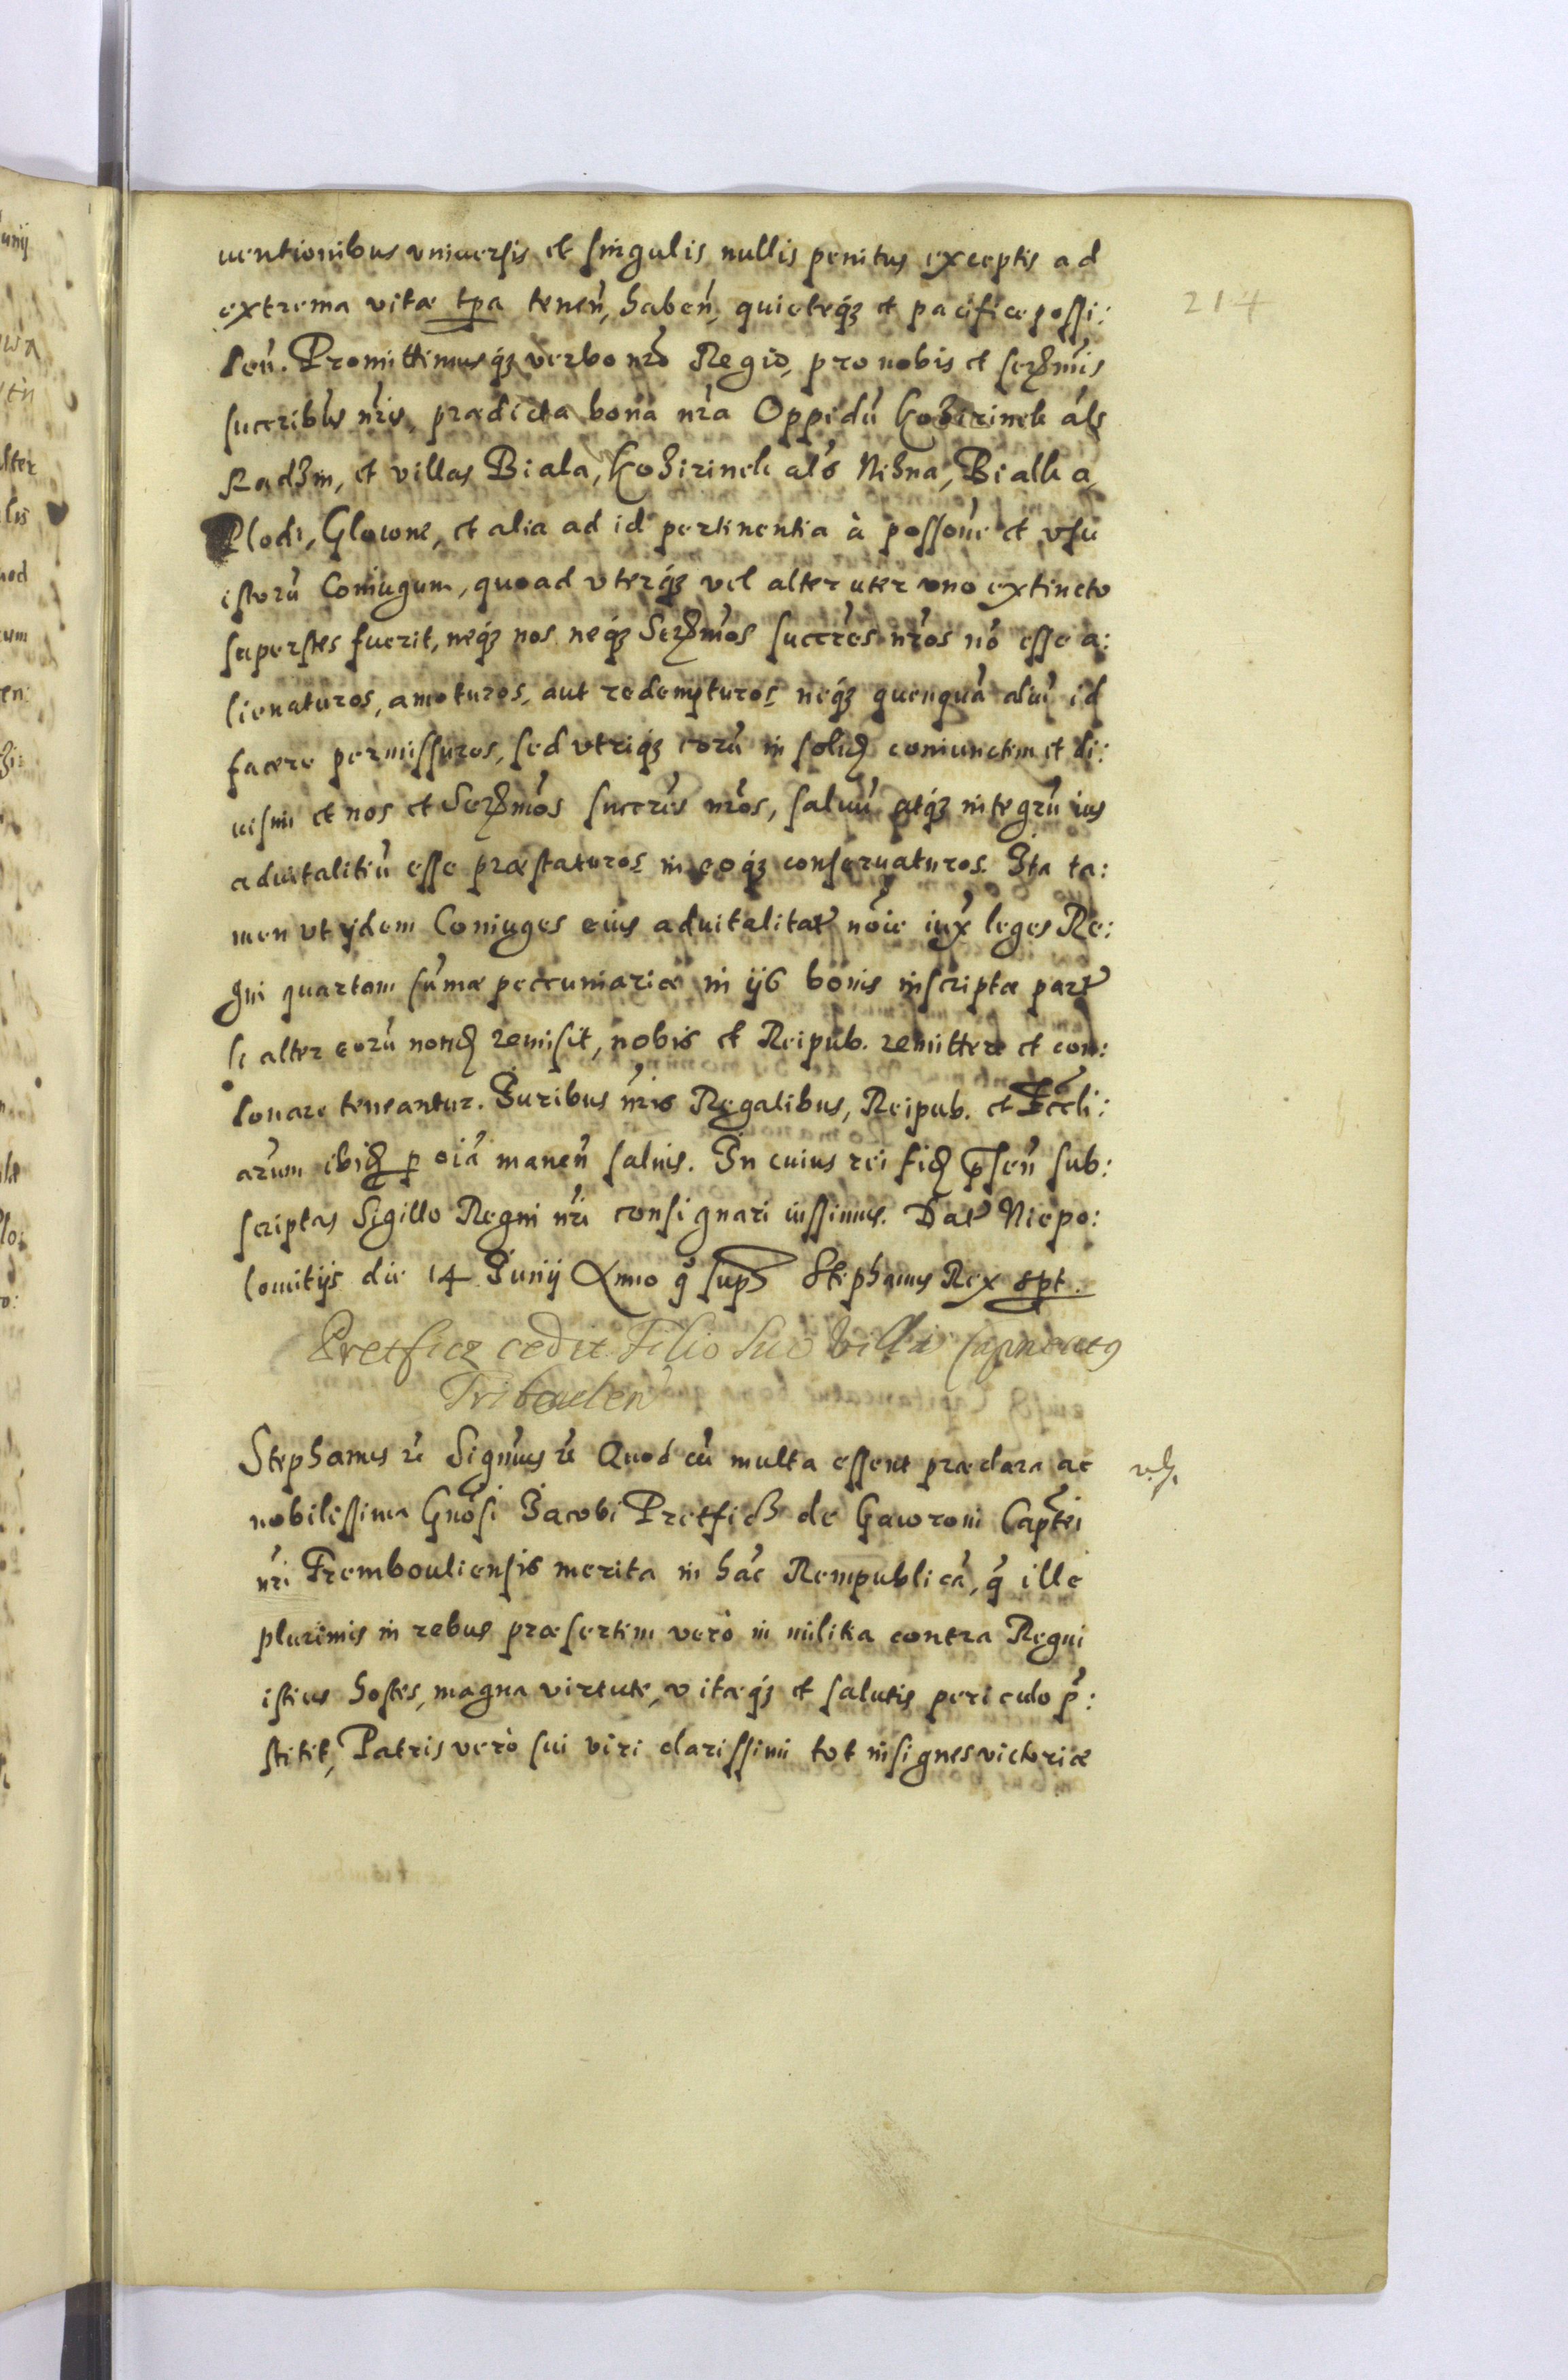 uentionibus vniuersis et singulis nullis penitus exceptis ad
extrema vitae tpa tenen, haben, quieteqз et pacifice possi:
den. Promittimusqз verbo nro Regio, pro nobis et serзmis
succribus nris, praedicta bona nra Oppidu Koзirinek als
Radзin, et villas Biala, Koзirinek als Niзna, Bialka,
Plodi, Glowne, et alia ad id pertinentia à possone et vsu
istoru Coniugum, quoad vterqз vel alter uter vno extincto
superstes fuerit, neqз nos neqз Serзmos succres nros no esse a:
lienaturos, amoturos, aut redempturos neqз quenqua aliu id
facere permissuros, sed vtriqз eoru in solid coniunctim et di:
uisim et nos et Serзmos succres nros, saluu atqз integru ius
aduitalitiu esse praestaturos in eoqз conseruaturos. Ita ta:
men vt ijdem Coniuges eius aduitalitat noie iux leges Re:
gni quartam sumae pecuniariae in ijs bonis inscriptae part
si alter eoru nond remisit, nobis et Reipub. remittere et con:
donare teneantur. Juribus nris Regalibus, Reipub. et Eccli:
arum ibid p oia manen saluis. In cuius rei fid psen sub:
scriptas Sigillo Regni nri consignari iussimus. Dat Niepo:
lomitijs die 14 Junij Anno q supra Stephanus Rex spt.
Pretficz cedit Filio suo villa Capneatus
Tribowlen
214
Stephanus re Signmus re Quod cu multa essent praeclara ac
nobilissima Gnosi Jacobi Pretficз de Gaworoni Captei
nri Trembouliensis merita in hac Rempublica, q ille
plurimis in rebus praesertim verò in militia contra Regni
istius hostes, magna virtute, vitaeqз et salutis periculo p:
stitit, Patris verò sui viri clarissimi tot insignes victoriae